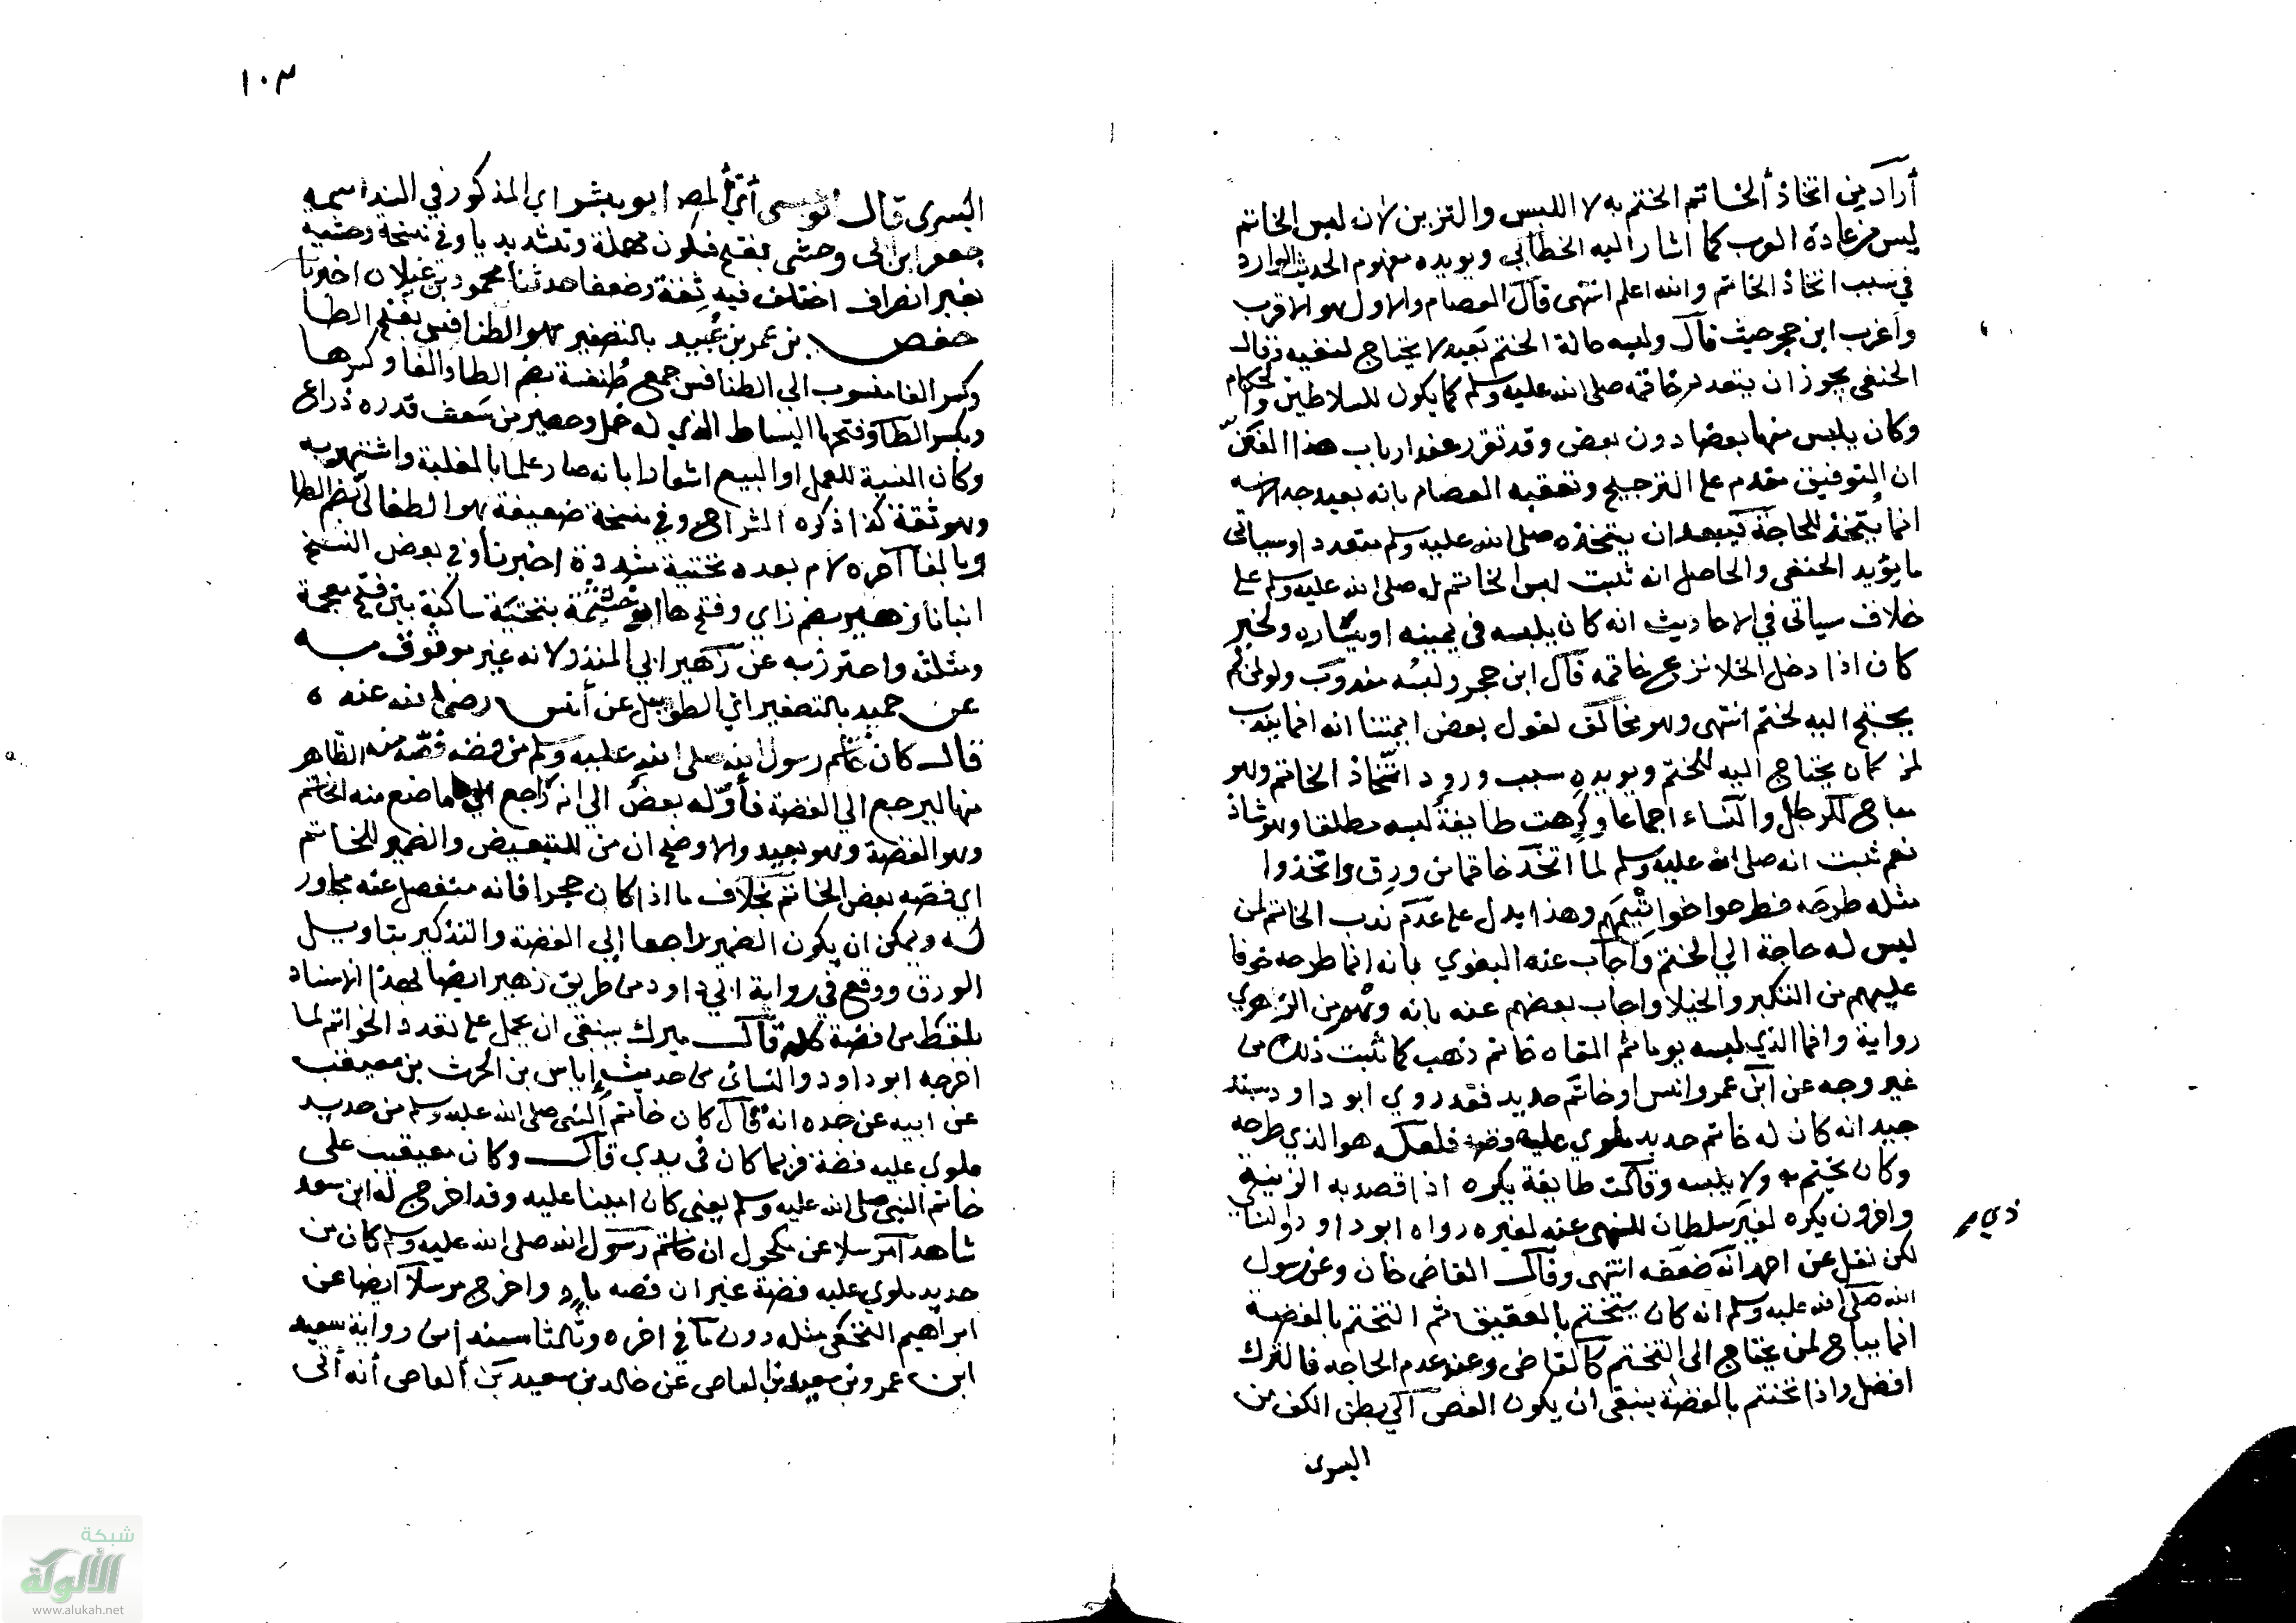 أراد من اتخاذ الخاتم الختم به لا اللبس والتزين لان لبس الخاتم
ليس من عادة العرب كما اشار اليه الخطابي ويويده مفهوم الحديث الوارد
في سبب اتخاذ الخاتم والله اعلم انتهى قال العصام والاول هو الاقرب
وأغرب ابن حجر حيث قال ولبسه حالة الختم بعيد لا يحتاج لنفيه قال
الحنفي يجوز ان يتعدد خاتمه صلى الله عليه وسلم كما يكون للسلاطين والحكام
وكان يلبس منها بعضا دون بعض وقد تقرر عند ارباب هذا الفن
ان التوفيق مقدم على الترجيح وتعقبه العصام بانه بعيد جدا لانه
انما يُتخذ للحاجة فيبعد ان يتخذه صلى الله عليه وسلم متعددا وسياتى
ما يؤيد الحنفى والحاصل انه ثبت لبس الخاتم له صلى الله عليه وسلم على
خلاف سياتى في الاحاديث انه كان يلبسه في يمينه او يساره ولخبر
كان اذا دخل الخلا نزع خاتمه قال ابن حجر ولبسُه مندوب ولو لمن لم
يحتج اليه لختم انتهى وهو مخالف لقول بعض ايمتنا انه انما يندب
لمن كان يحتاج اليه للختم ويويده سبب ورود اتخاذ الخاتم وهو
مباح للرجل والنساء اجماعا وكرهت طايفة لبسه مطلقا وهو شاذ
نعم ثبت انه صلى الله عليه وسلم لما اتخذ خاتما من ورق واتخذوا
مثله طرحه فطرحوا خواتيمهم وهذا يدل على عدم ندب الخاتم لمن
ليس له حاجة الي الختم وأجاب عنه البغوي بانه انما طرحه خوفا
عليهم من التكبر والخيلا واجاب بعضهم عنه بانه وهم من الزهري
رواية وانما الذي لبسه يوما ثم القاه خاتم ذهب كما ثبت ذلك من
غير وجه عن ابن عمر وانس او خاتم حديد فقد روي ابو داود بسند
جيد انه كان له خاتم حديد ملوي عليه فضه فلعله هو الذي طرحه
وكان يختم به ولا يلبسه وقالت طايفة يكره اذا قصد به الزينة
واخرون يكره لغير سلطان للنهى عنه لغيره رواه ابو داود والنسائي
ذي
لكن نقل عن احمد انه ضعفه انتهى وقال القاضى خان وعن رسول
الله صلى الله عليه وسلم انه كان يتختم بالعقيق ثم التختم بالفضة
انما يباح لمن يحتاج الى التختم كالقاضى وعند عدم الحاجه فالترك
افضل واذا تختم بالفضة ينبغى ان يكون الفص الى بطن الكف من
اليسرى
١٠٣
اليسرى قال ابو عيسى أي المص ابو بشر اي المذكور في السند اسمه
جعفر ابن ابي وحشى بفتح فسكون مهملة وتشديد يا وفي نسخة وحشية
بغير انصراف اختلف فيه ثقة وضعفا حدثنا محمود بن غيلان اخبرنا
حفص بن عمر بن عُبيد بالتصغير هو الطنافسي بفتح الطا
وكسر الفا منسوب الى الطنافس جمع طُنفسة بضم الطا والفا وكسرها
وبكسر الطا وفتحها البساط الذي له خمل وحصير من سَعف قدره ذراع
وكان النسبة للعمل او البيع اشعارا بانه صار علما بالغلبة واشتهر به
وهو ثقة كذا ذكره الشراح وفي نسخة ضعيفة هو الطفالي بضم الطا
وبالفا آخره لام بعده تحتية مشددة اخبرنا وفي بعض النسخ
انبانا زهير بضم زاي وفتح ها ابو خيثمة بتحتية ساكنة بين فتح معجمة
ومثلثه واحترز به عن زهير ابي المنذر لانه غير موثوق به
عن حميد بالتصغير اي الطويل عن أنس رضي الله عنه
قال كان خاتم رسول الله صلى الله عليه وسلم من فضه فصّه منه الظاهر
منها ليرجع الي الفضة فأوّله بعضٌ الي انه راجع الي ما صنع منه الخاتم
وهو الفضة وهو بعيد والاوضح ان من للتبعيض والضمير للخاتم
اي فصّه بعض الخاتم بخلاف ما اذا كان حجرا فانه منفصل عنه مجاور
له ويمكن ان يكون الضمير راجعا إلي الفضة والتذكير بتاويل
الورق ووقع في رواية ابي داود من طريق زهير ايضا لهذا الاسناد
بلفظ من فضة كله قال ميرك ينبغى ان يحمل على تعدد الخواتم لما
اخرجه ابو داود والنسائى من حديث إياس بن الحرث بن معيقيب
عن ابيه عن جده انه قال كان خاتم النبى صلى الله عليه وسلم من حديد
ملوى عليه فضة فربما كان في يدي قال وكان معيقيب على
خاتم النبى صلى الله عليه وسلم يعنى كان امينا عليه وقد اخرج له ابن سعد
شاهدا مرسلا عن مكحول ان خاتم رسول الله صلى الله عليه وسلم كان من
حديد ملوي عليه فضة غير ان فصه باد واخرج مرسلا ايضا عن
ابراهيم النخعى مثله دون ما في اخره وثالثا مسندا من رواية سعيد
ابن عمرو بن سعيد بن العاص عن خالد بن سعيد بن العاص أنه أتى
شبكة
الألوكة
www.alukah.net